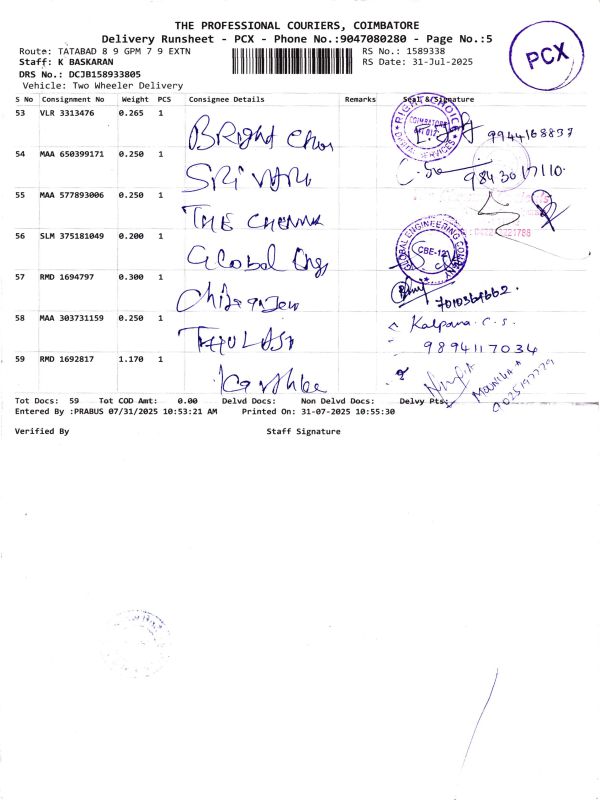 THE PROFESSIONAL COURIERS, COIMBATORE
Delivery Runsheet - PCX - Phone No.:9047080280 - Page No.:5
Route: TATABAD 8 9 GPM 7 9 EXTN
RS No.: 1589338
PCX
Staff: K BASKARAN
RS Date: 31-Jul-2025
DRS No.: DCJB158933805
Vehicle: Two Wheeler Delivery
S No Consignment No Weight PCS Consignee Details Remarks Seal &Signature
53 VLR 3313476 0.265 1
Bright
9944168837
54 MAA 650399171 0.250 1
SRI
9843017110
55 MAA 577893006 0.250 1
THE CHENNA
56 SLM 375181049 0.200 1
Global Eng
GLOBAL ENGINEERING COMPANY
CBE-12
57 RMD 1694797 0.300 1
58 MAA 303731159 0.250 1
Kalpana. C. S.
THULASI
9894117034
59 RMD 1692817 1.170 1
Tot Docs: 59 Tot COD Amt: 0.00 Delvd Docs: Non Delvd Docs: Delvy Pts:
Entered By :PRABUS 07/31/2025 10:53:21 AM Printed On: 31-07-2025 10:55:30
Verified By Staff Signature